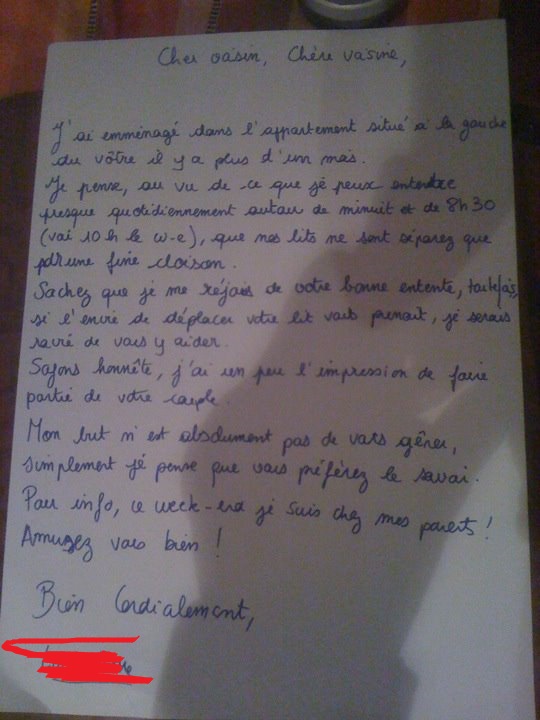 Cher voisin, Chère voisine,
J'ai emménagé dans l'appartement situé à la gauche
du vôtre il y a plus d'un mois.
Je pense, au vu de ce que je peux entendre
presque quotidiennement autour de minuit et de 8h30
(voir 10h le w-e), que nos lits ne sont séparez que
par une fine cloison.
Sachez que je me réjouis de votre bonne entente, toutefois,
si l'envie de déplacer votre lit vous prenait, je serais
ravie de vous y aider.
Soyons honnête, j'ai un peu l'impression de faire
partie de votre couple.
Mon but n'est absolument pas de vous gêner,
simplement je pense que vous préférez le savoir.
Pour info, ce week-end je suis chez mes parents !
Amusez vous bien !
Bien Cordialement,